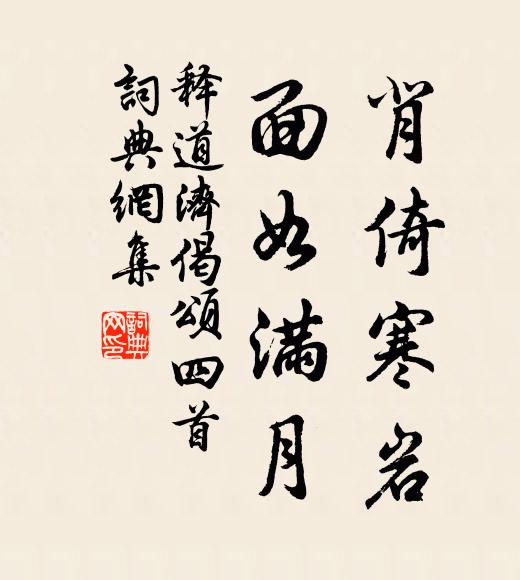 背倚寒岩
面如满月
释道濟偈頌四首
詞典網集
詞典网印